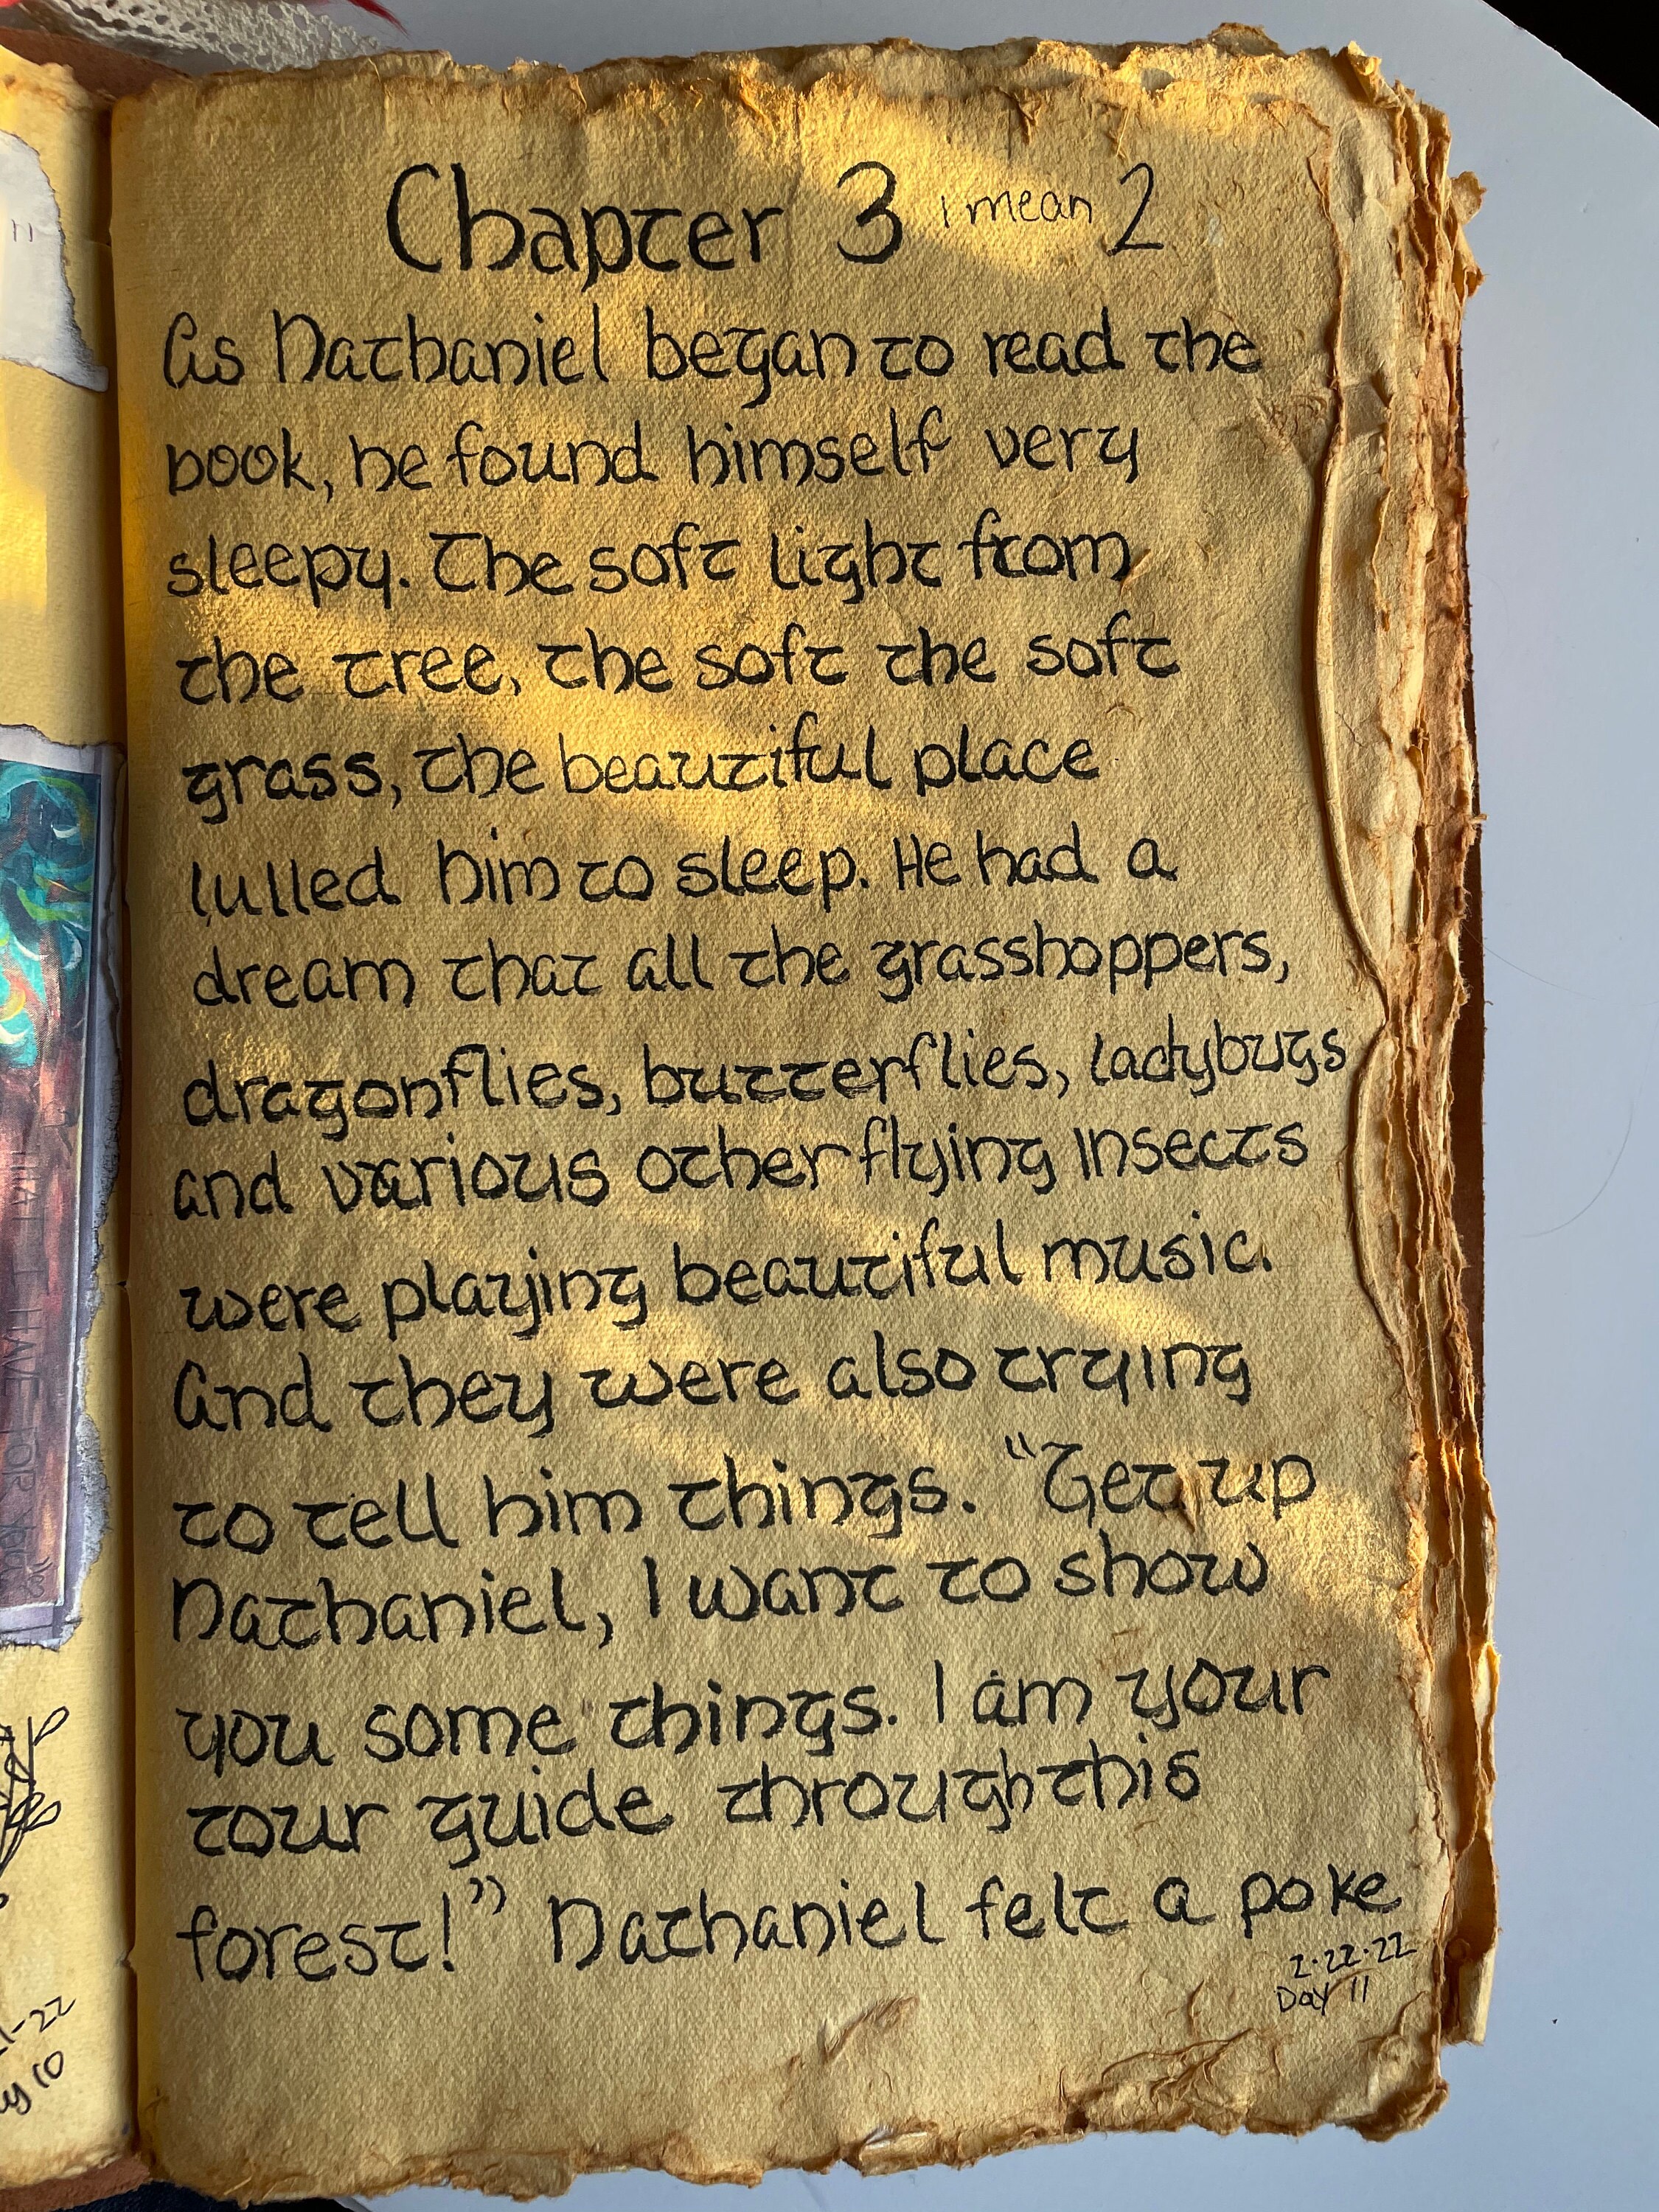 Chapter 3 i mean 2
As Nathaniel began to read the
book, he found himself very
sleepy. The soft light from
the tree, the soft the soft
grass, the beautiful place
lulled him to sleep. He had a
dream that all the grasshoppers,
dragonflies, butterflies, ladybugs
and various other flying insects
were playing beautiful music.
And they were also trying
to tell him things. "Get up
Nathaniel, I want to show
you some things. I am your
tour guide through this
forest!" Nathaniel felt a poke
2·22·22
Day 11
THAT I HAVE FOR YOU
1-22
y 10